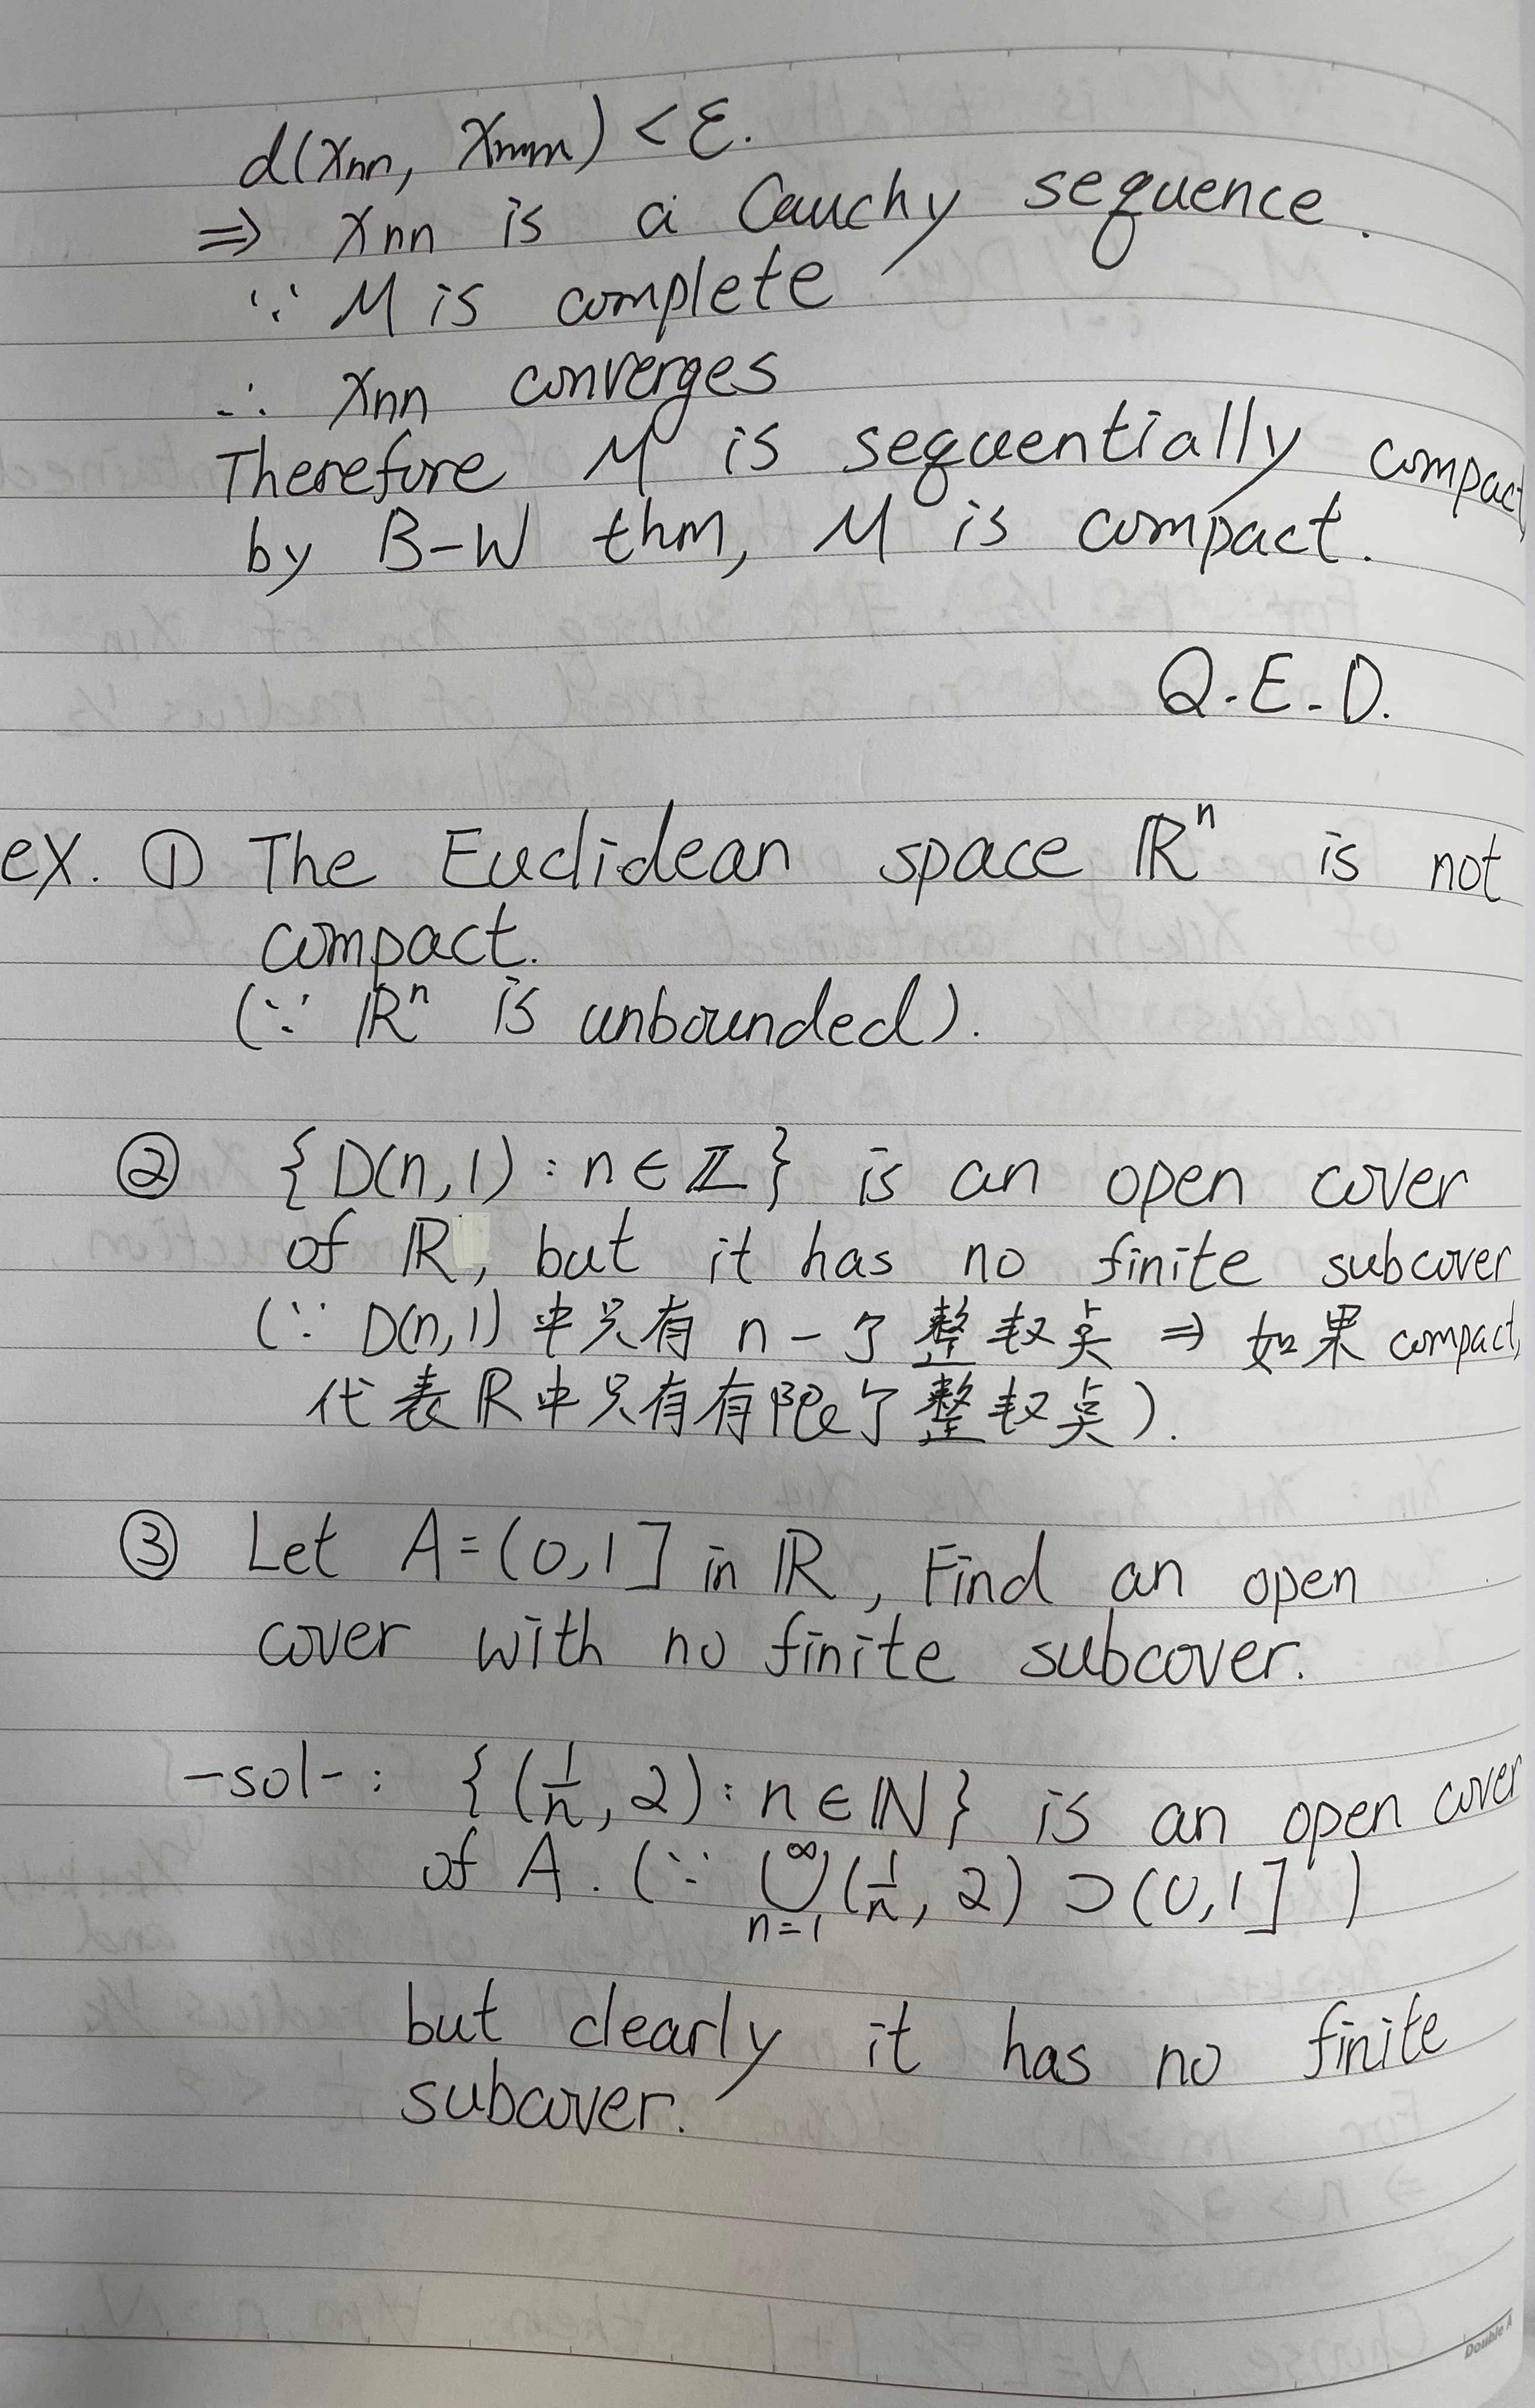 d(xₙₙ, xₘₘ) < ε.
⇒ xₙₙ is a Cauchy sequence.
∵ M is complete
∴ xₙₙ converges
Therefore M is sequentially compact
by B-W thm, M is compact.
Q.E.D.
ex. ① The Euclidean space ℝⁿ is not
compact.
(∵ ℝⁿ is unbounded).
② {D(n,1) : n ∈ ℤ} is an open cover
of ℝ, but it has no finite subcover
(∵ D(n,1) 中只有 n 一个 整数点 ⇒ 如果 compact,
代表 ℝ 中只有有限个整数点).
③ Let A = (0,1] in ℝ, Find an open
cover with no finite subcover.
-sol- : {(1/n, 2) : n ∈ ℕ} is an open cover
of A. (∵ ⋃ₙ₌₁^∞ (1/n, 2) ⊃ (0,1] )
but clearly it has no finite
subcover.
Double A